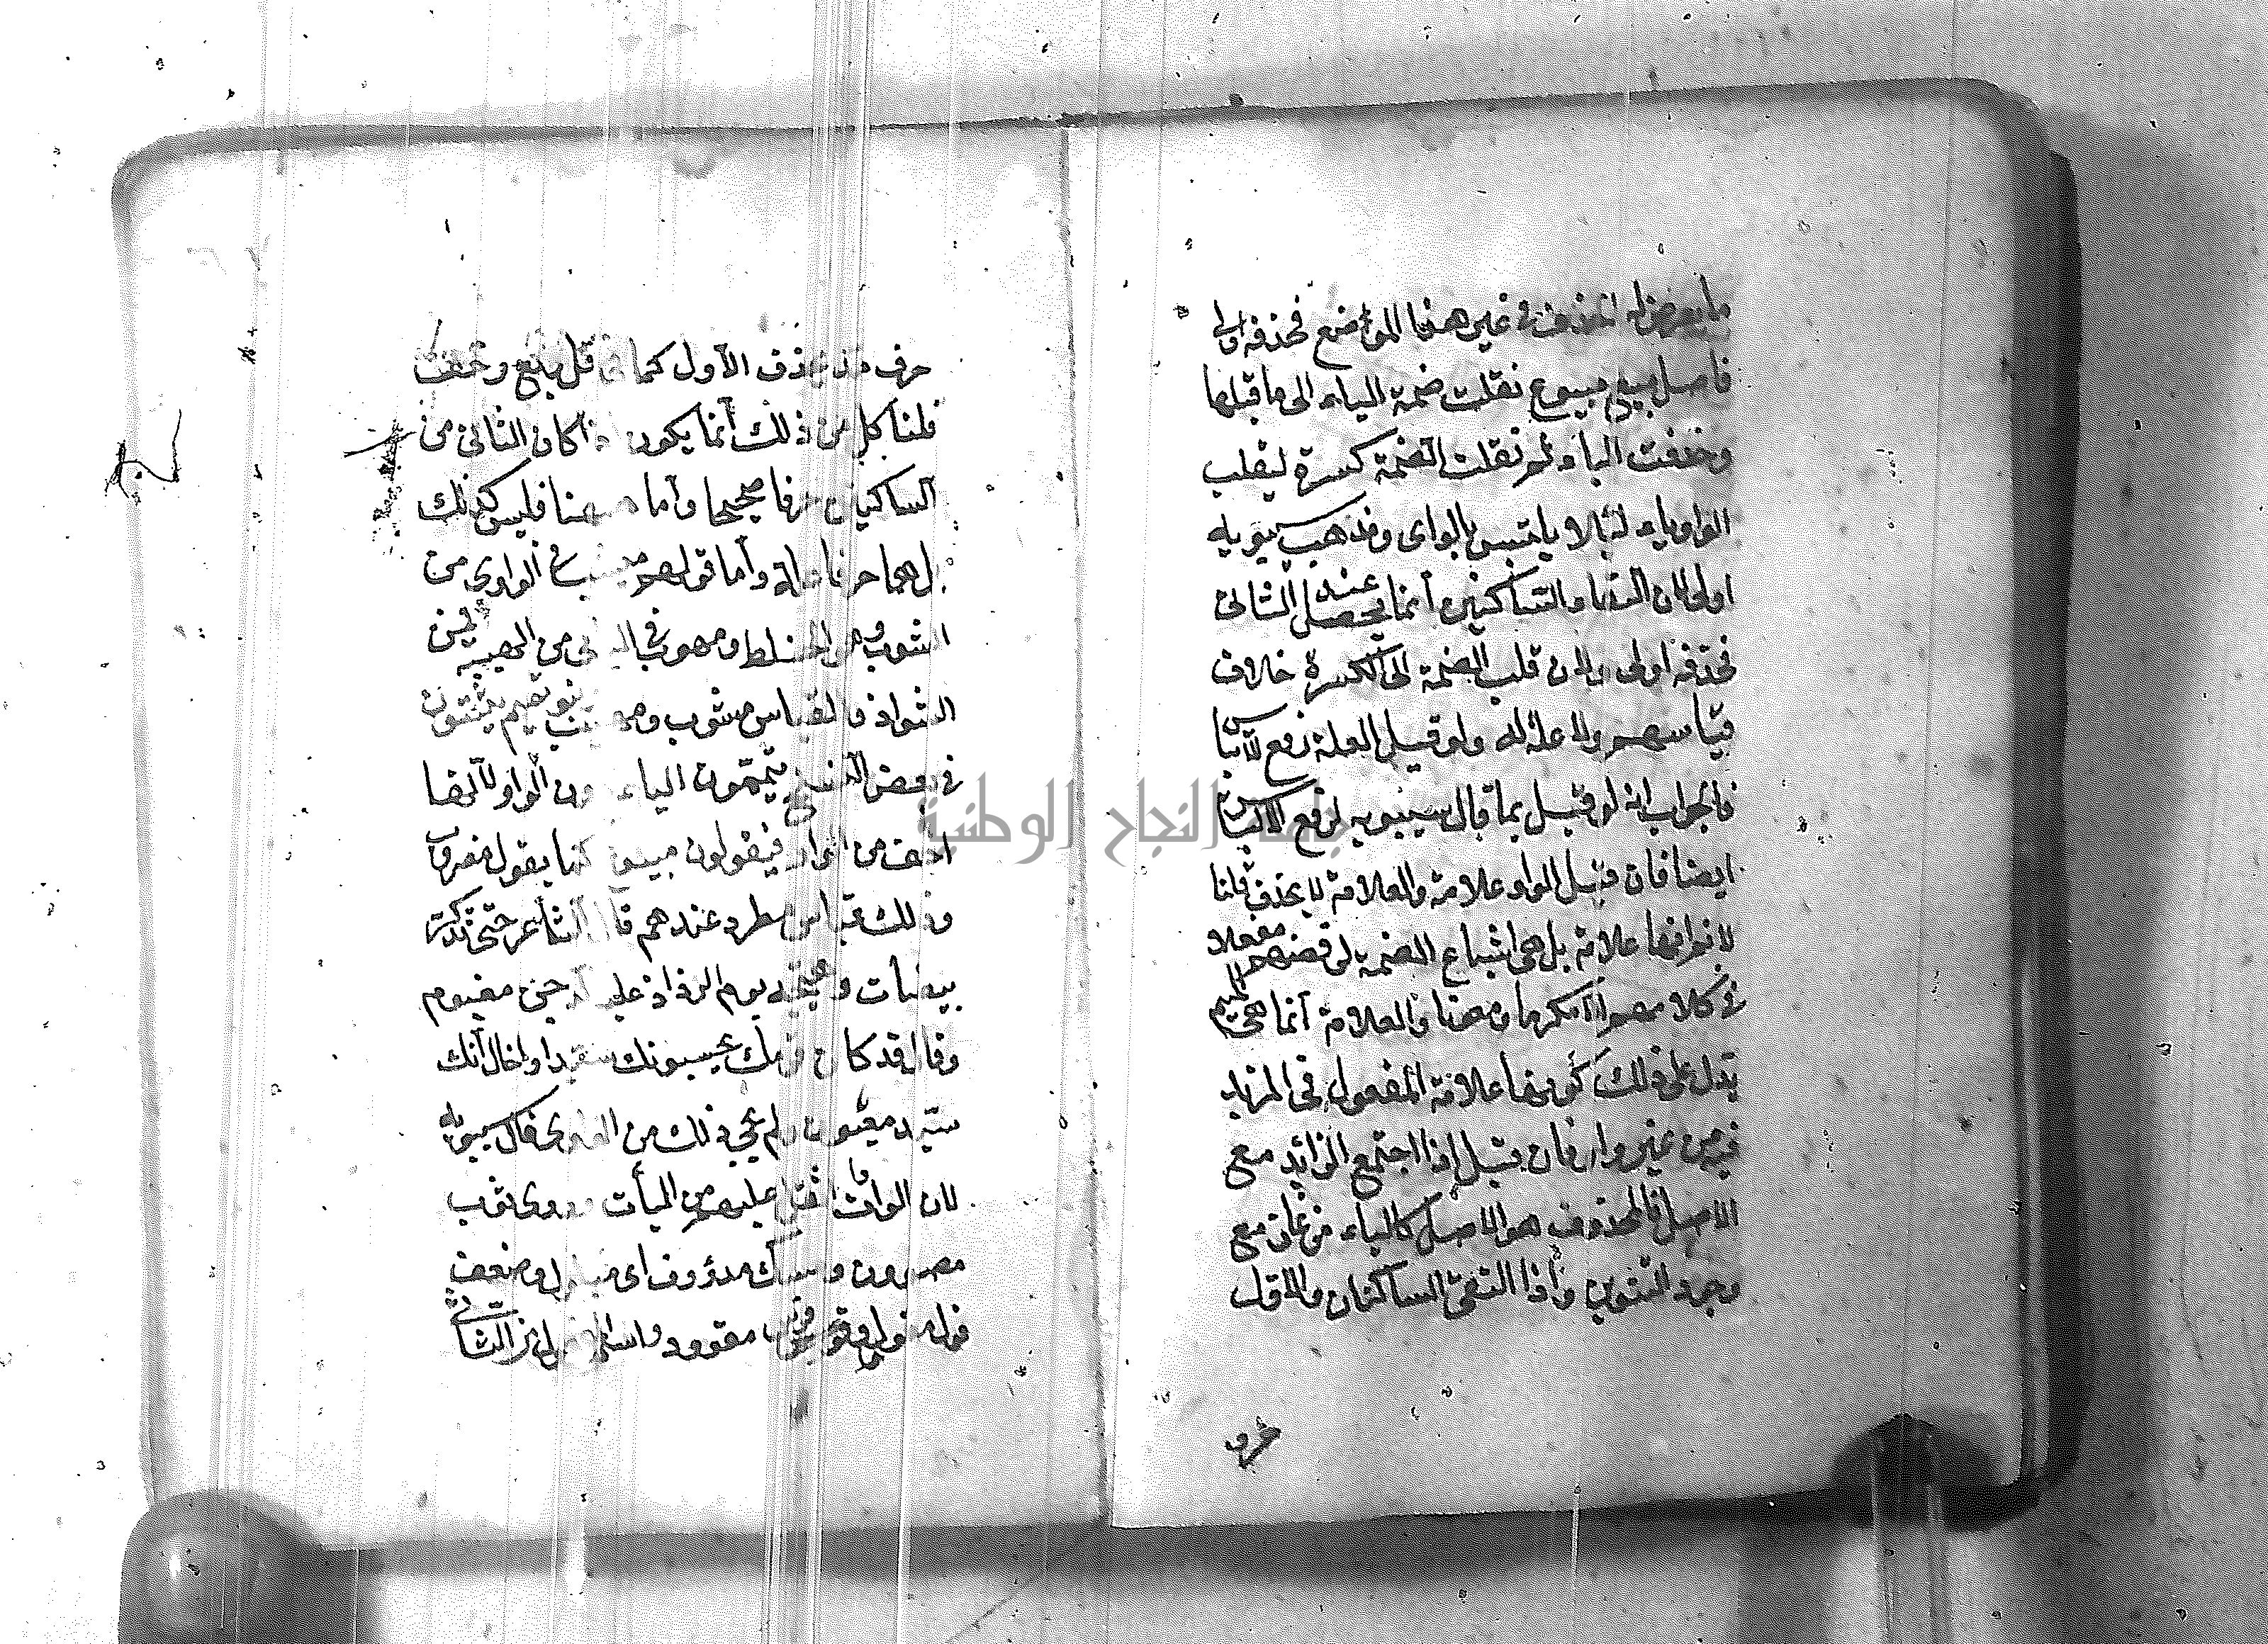 ما يعرض له الحذف في غير هذا الموضع فحذفه اولى
فاصل مبيع مبيوع نقلت ضمة الياء الى ما قبلها
وحذفت الياء ثم نقلت الضمة كسرة ليقلب
الواو ياء لئلا يلتبس بالواوى ومذهب سيبويه
اولى لان التقاء الساكنين انما يحصل عند الثانى
فحذفه اولى ولان قلب الضمة الى الكسرة خلاف
قياسهم ولا علة له ولو قيل العلة رفع الالتباس
فالجواب انه لو قيل بما قال سيبويه لرفع الالتباس
ايضا فان قيل الواو علامة والعلامة لا يحذف قلنا
لا نم انها علامة بل هى اشباع الضمة لرفضهم مفعلا
فى كلامهم الا مكرما ومعنا والعلامة انما هى الميم
يدل على ذلك كونها علامة المفعول فى المزيد
فيه من غير واو فان قيل اذا اجتمع الزائد مع
الاصل فالمحذوف هو الاصل كالياء من غاز مع
وجود التنوين واذا التقى الساكنان والاول
حرف
حرف مد يحذف الاول كما فى قل وبع وخف
قلنا كل من ذلك انما يكون اذا كان الثانى من
الساكنين حرفا صحيحا واما ههنا فليس كذلك
بل هما حرفا علة واما قولهم مشيب فى الواوى من
الشوب وهو الخلط ومهوب فى اليائى من الهيبة فمن
الشواذ والقياس مشوب ومهيب بنو تميم يثبتون
فى بعض النسخ يتممون الياء دون الواو لانها
اخف من الواو فيقولون مبيوع كما يقول مضروب
وذلك قياس مطرد عندهم قال الشاعر حتى تذكر
بيضات وهيجه يوم الرذاذ عليه الدجن مغيوم
وقال قد كان قومك يحسبونك سيدا واخال انك
سيد معيون ولم يجئ ذلك من الواوى قال سيبويه
لان الواوات اثقل عليهم من اليأت وروى ثوب
مصوون ومسك مدووف اى مبلول وضعف
قول مقوول وفرس مقوود